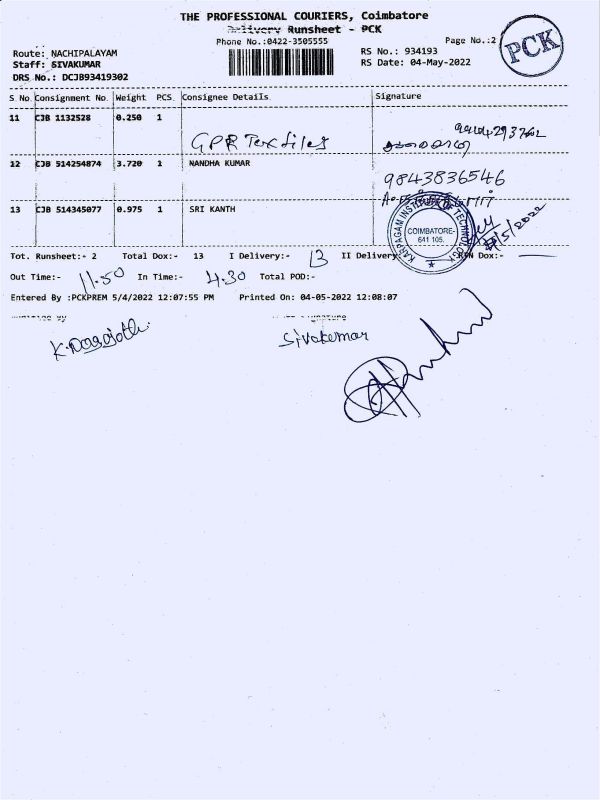 THE PROFESSIONAL COURIERS, Coimbatore
Delivery Runsheet - PCK
Phone No.:0422-3505555
Page No.:2
PCK
Route: NACHIPALAYAM
RS No.: 934193
Staff: SIVAKUMAR
RS Date: 04-May-2022
DRS No.: DCJB93419302
S No Consignment No. Weight PCS Consignee Details Signature
11 CJB 1132528 0.250 1
GPR Textiles
12 CJB 514254874 3.720 1 NANDHA KUMAR
9843836546
13 CJB 514345077 0.975 1 SRI KANTH
KARPAGAM INSTITUTE OF TECHNOLOGY
COIMBATORE-
641 105.
Tot. Runsheet:- 2 Total Dox:- 13 I Delivery:- 13 II Delivery Dox:-
Out Time:- 11.50 In Time:- 4.30 Total POD:-
Entered By :PCKPREM 5/4/2022 12:07:55 PM Printed On: 04-05-2022 12:08:07
Sivakumar